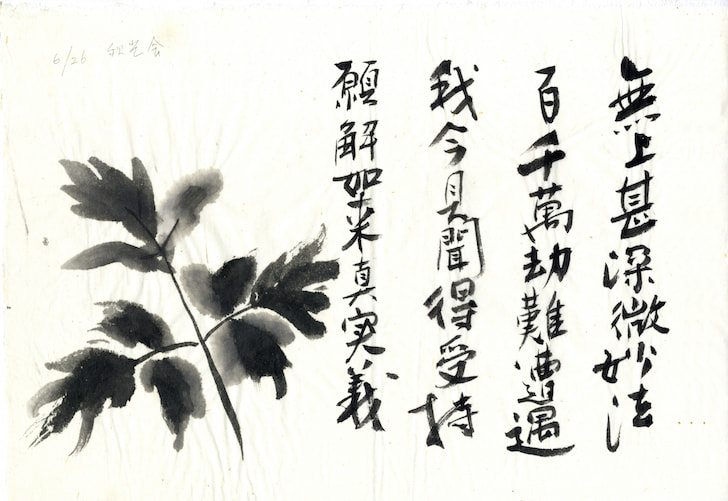 無上甚深微妙法
百千萬劫難遭遇
我今見聞得受持
願解如来真実義
6/26